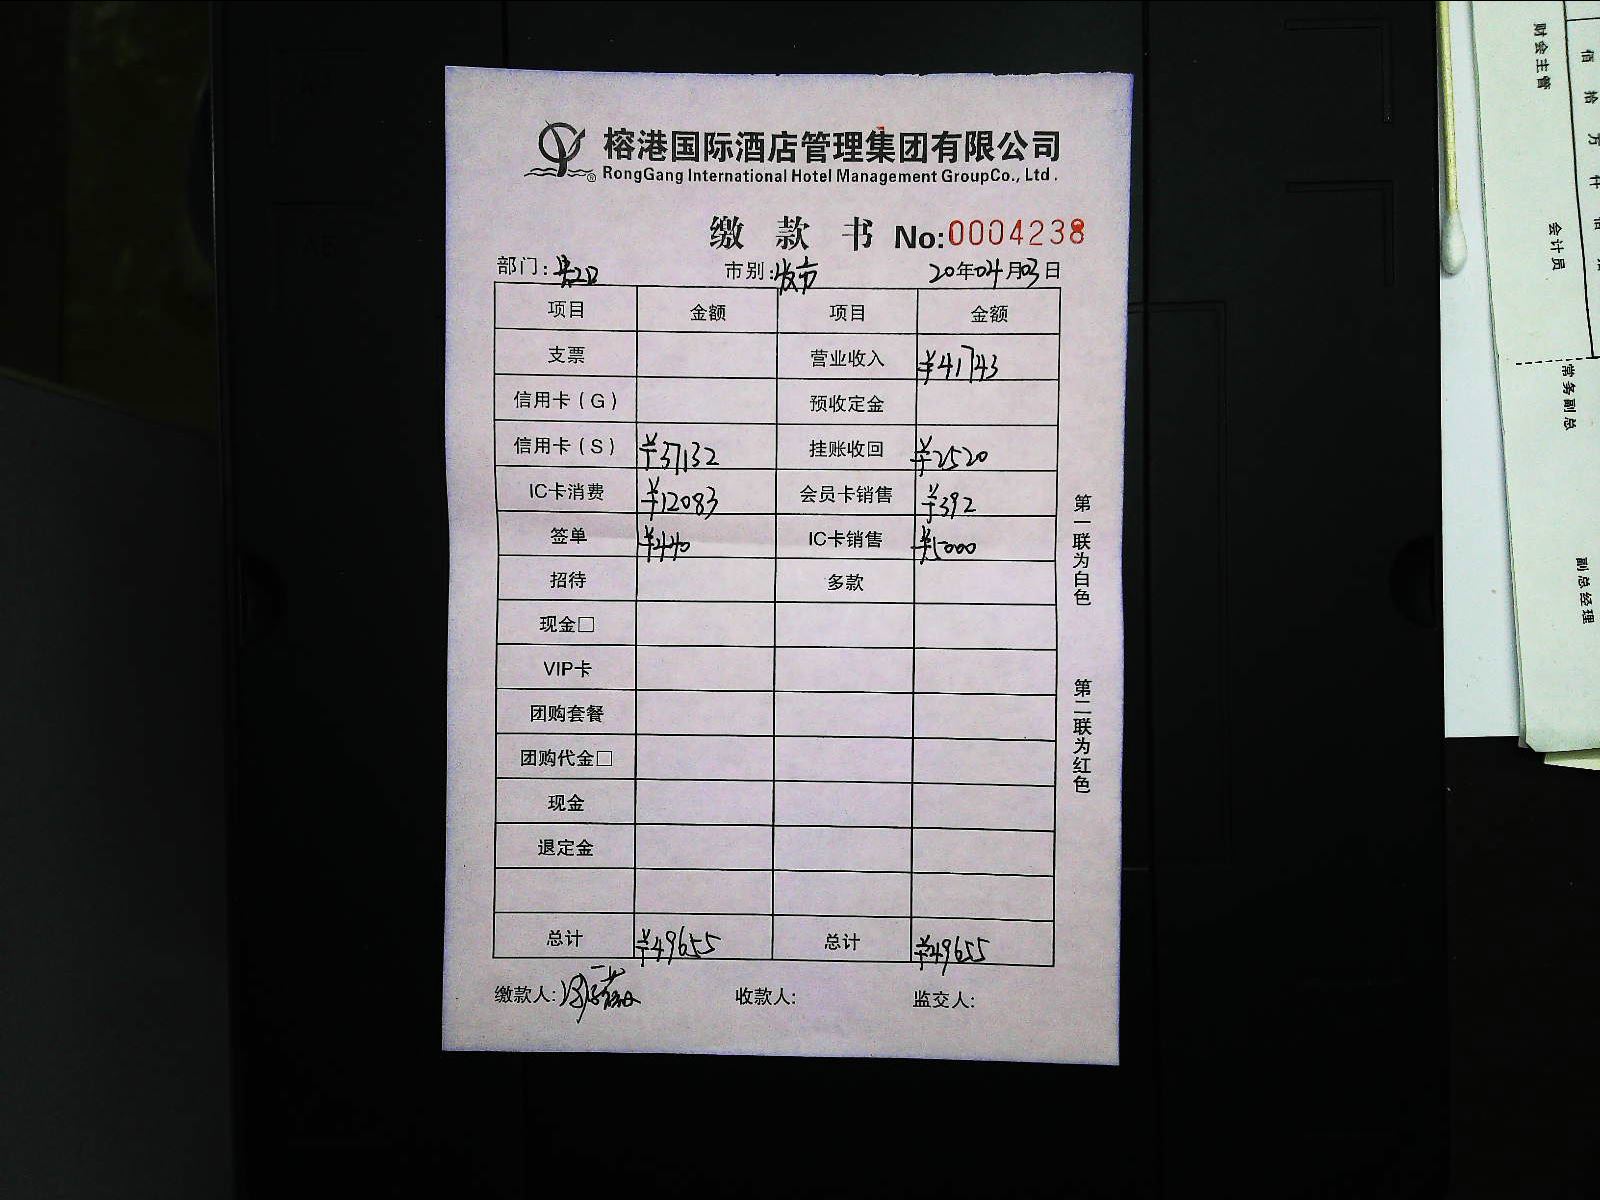 榕港国际酒店管理集团有限公司
RongGang International Hotel Management GroupCo., Ltd.
缴款书 No:0004238
部门: 市别: 夜市 20年04月03日
项目 金额 项目 金额
支票 营业收入 ¥41743
信用卡（G） 预收定金
信用卡（S） ¥37132 挂账收回 ¥2520
IC卡消费 ¥12083 会员卡销售 ¥392
签单 ¥440 IC卡销售 ¥5000
招待 多款
现金□
VIP卡
团购套餐
团购代金□
现金
退定金
总计 ¥49655 总计 ¥49655
缴款人: 收款人: 监交人:
第一联为白色
第二联为红色
财会主管
会计员
常务副总
副总经理
佰拾万仟佰